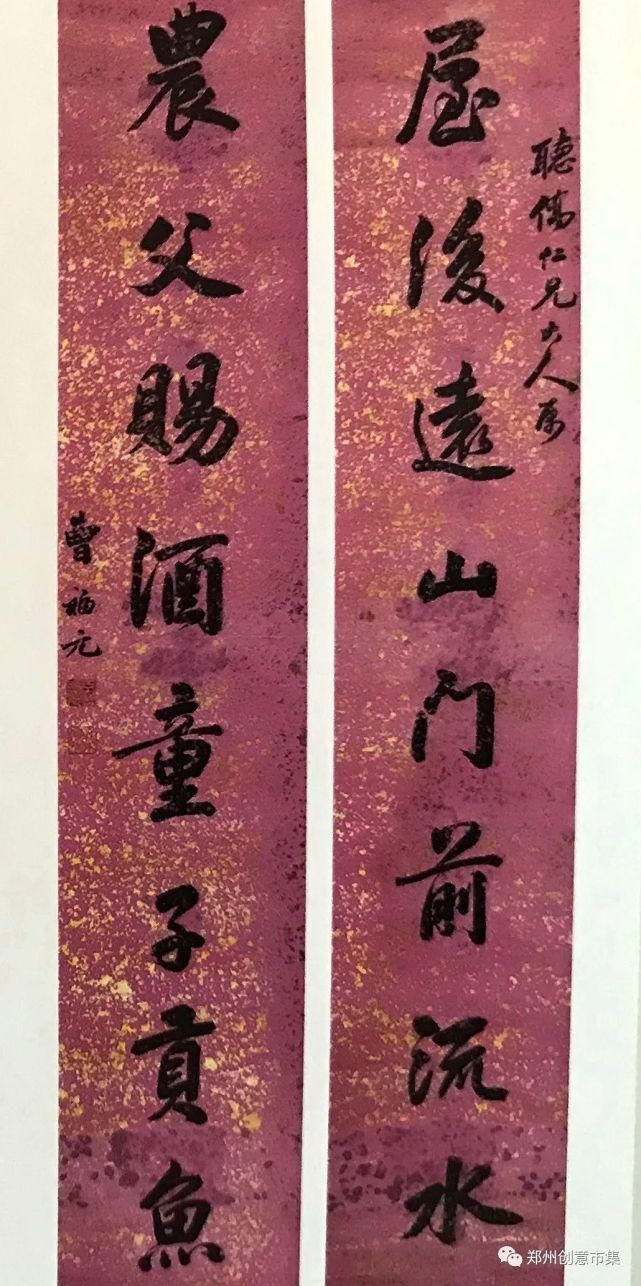 聽儔仁兄大人屬
屋後遠山門前流水
農父賜酒童子貢魚
曹福元
郑州创意市集